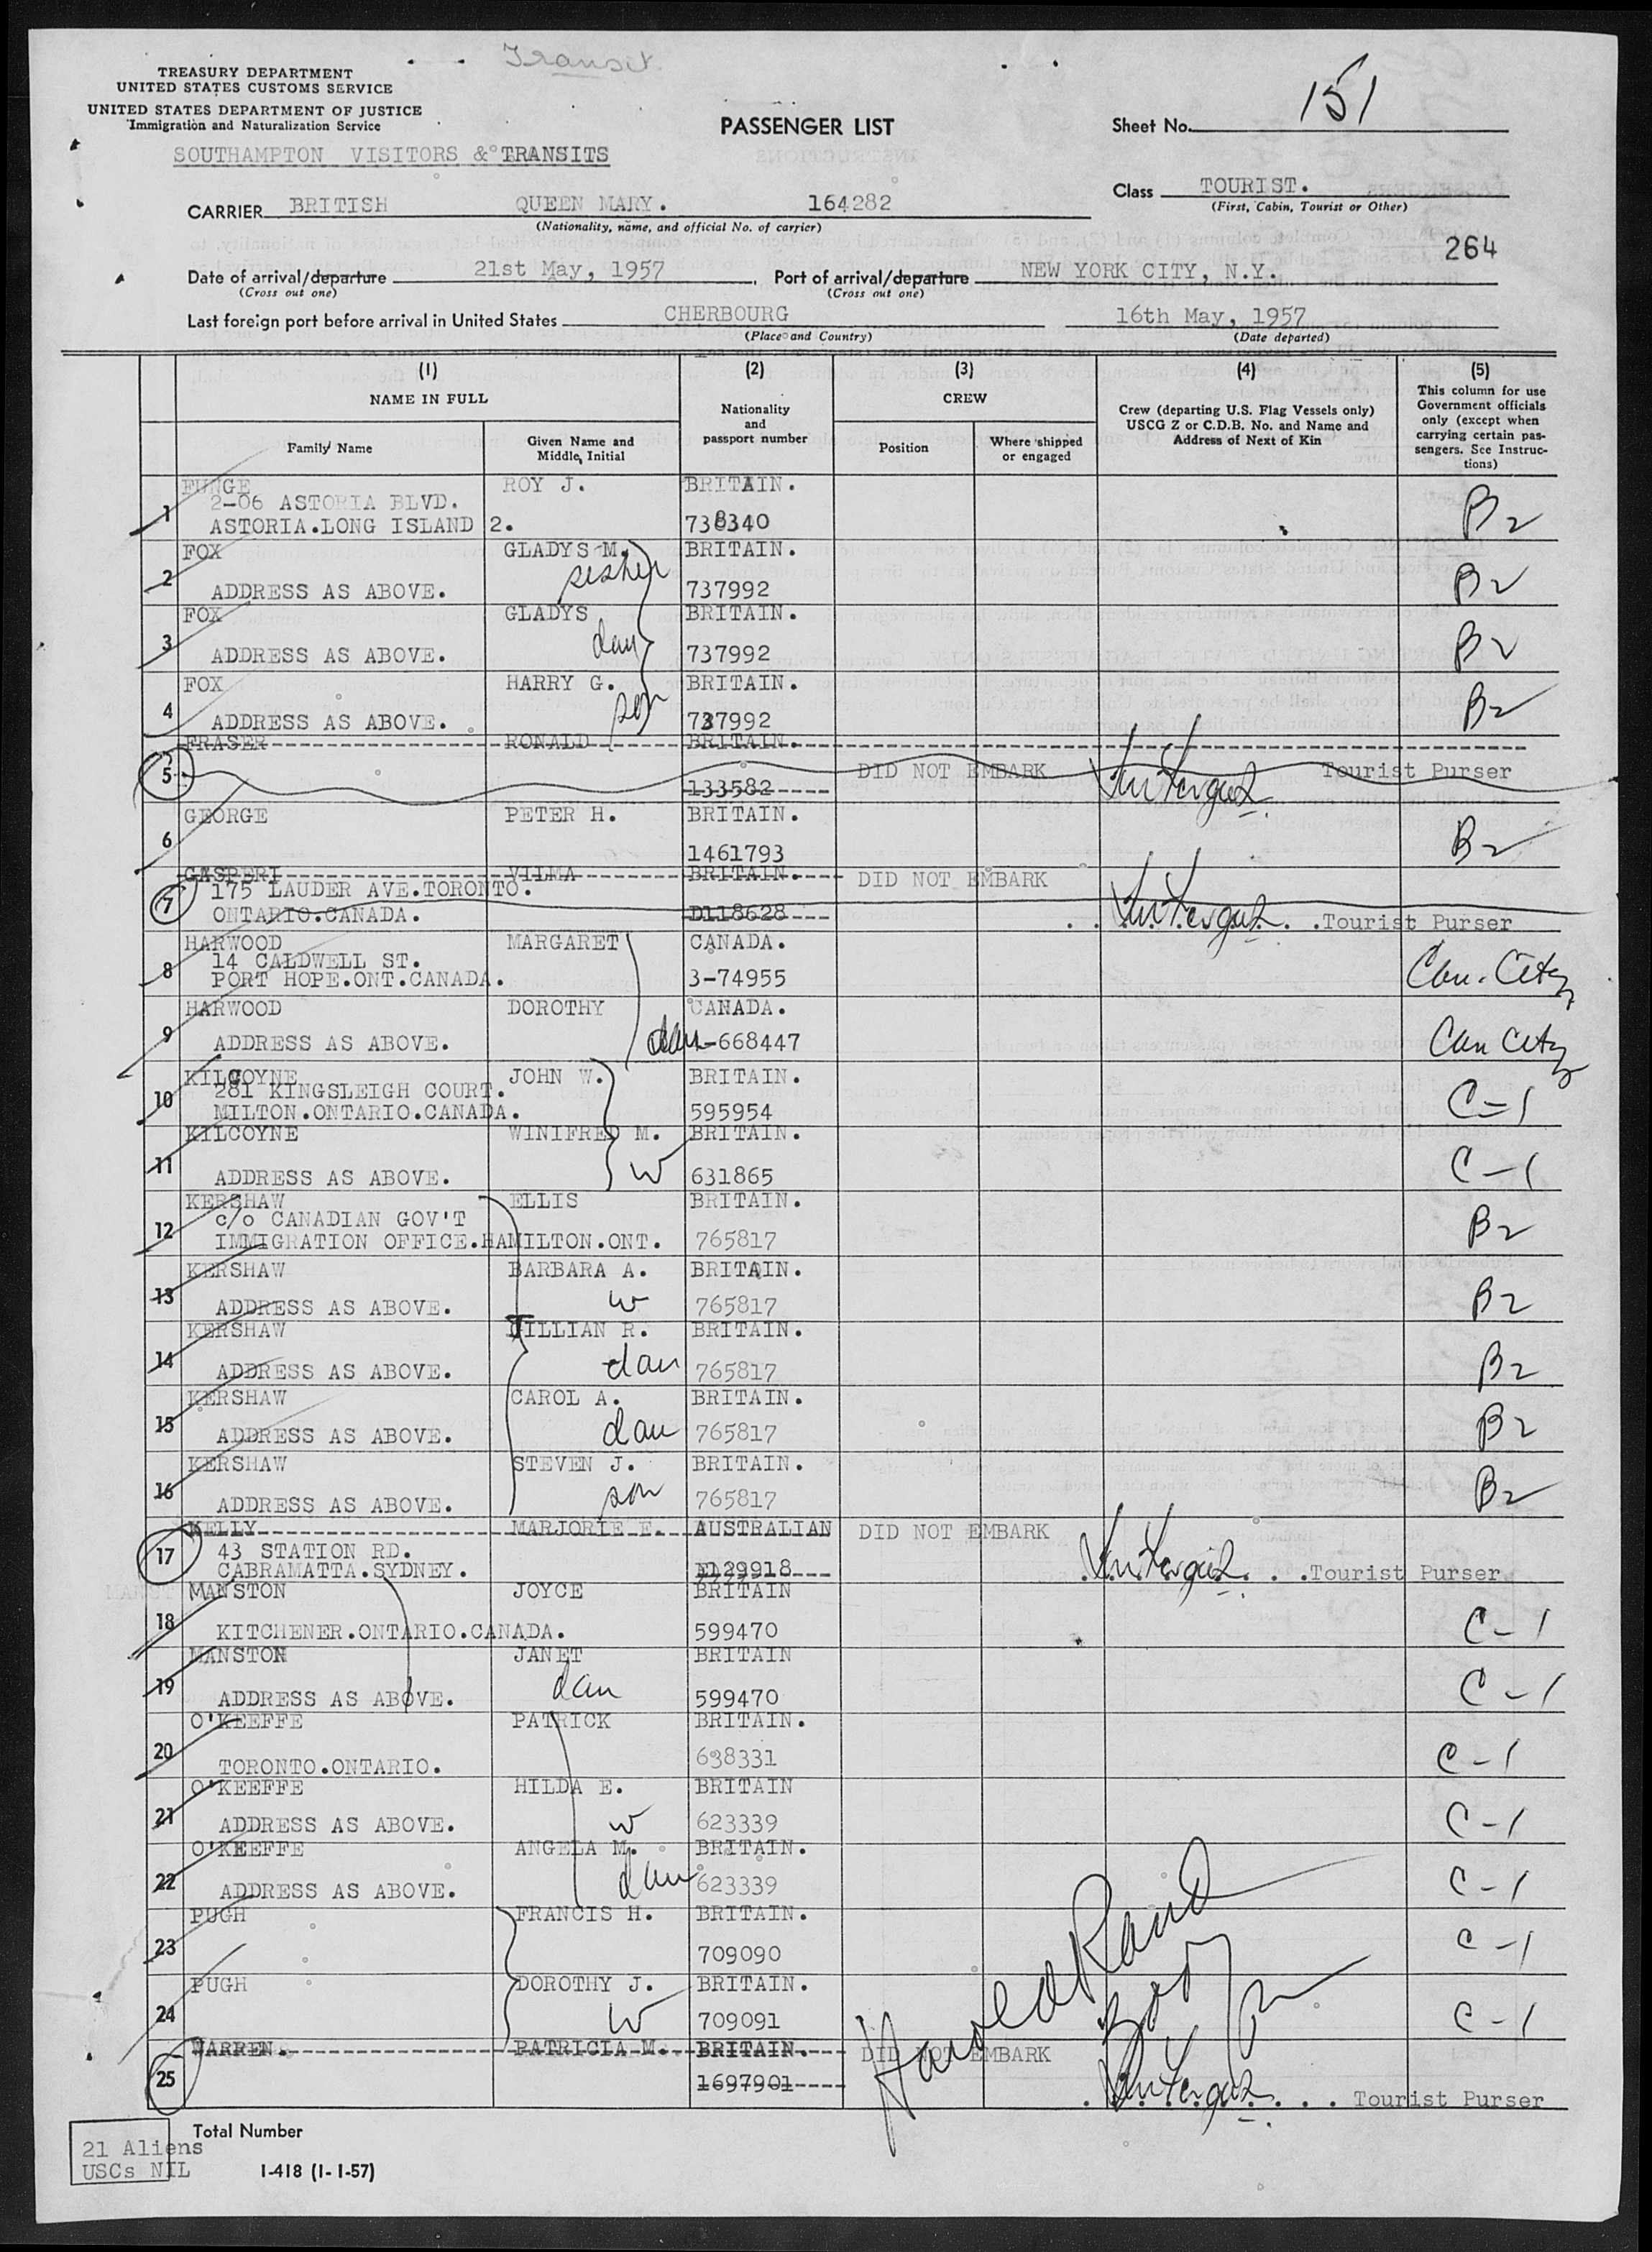 Transit
TREASURY DEPARTMENT
UNITED STATES CUSTOMS SERVICE
UNITED STATES DEPARTMENT OF JUSTICE
Immigration and Naturalization Service
PASSENGER LIST
Sheet No. 151
SOUTHAMPTON VISITORS & TRANSITS
Class TOURIST.
(First, Cabin, Tourist or Other)
CARRIER BRITISH QUEEN MARY. 164282
(Nationality, name, and official No. of carrier)
264
Date of arrival/departure 21st May, 1957 Port of arrival/departure NEW YORK CITY, N.Y.
(Cross out one) (Cross out one)
Last foreign port before arrival in United States CHERBOURG 16th May, 1957
(Place and Country) (Date departed)
(1) (2) (3) (4) (5)
NAME IN FULL
Family Name
Given Name and Middle Initial
Nationality and passport number
CREW
Position
Where shipped or engaged
Crew (departing U.S. Flag Vessels only)
USCG Z or C.D.B. No. and Name and
Address of Next of Kin
This column for use
Government officials
only (except when
carrying certain pas-
sengers. See Instruc-
tions)
1 FUNGE ROY J. BRITAIN. B2
2-06 ASTORIA BLVD.
ASTORIA.LONG ISLAND 2. 738340
2 FOX GLADYS M. BRITAIN. B2
sister
ADDRESS AS ABOVE. 737992
3 FOX GLADYS BRITAIN. B2
dau
ADDRESS AS ABOVE. 737992
4 FOX HARRY G. BRITAIN. B2
son
ADDRESS AS ABOVE. 737992
5 FRASER RONALD BRITAIN.
DID NOT EMBARK Tourist Purser
133582
6 GEORGE PETER H. BRITAIN. B2
1461793
7 GASPERI VILMA BRITAIN. DID NOT EMBARK
175 LAUDER AVE.TORONTO.
ONTARIO.CANADA. D118628 Tourist Purser
8 HARWOOD MARGARET CANADA. Can. City
14 CALDWELL ST.
PORT HOPE.ONT.CANADA. 3-74955
9 HARWOOD DOROTHY CANADA. Can City
ADDRESS AS ABOVE. dau -668447
10 KILCOYNE JOHN W. BRITAIN. C-1
281 KINGSLEIGH COURT.
MILTON.ONTARIO.CANADA. 595954
11 KILCOYNE WINIFRED M. BRITAIN. C-1
ADDRESS AS ABOVE. W 631865
12 KERSHAW ELLIS BRITAIN. B2
c/o CANADIAN GOV'T
IMMIGRATION OFFICE.HAMILTON.ONT. 765817
13 KERSHAW BARBARA A. BRITAIN. B2
ADDRESS AS ABOVE. w 765817
14 KERSHAW JILLIAN R. BRITAIN. B2
ADDRESS AS ABOVE. dau 765817
15 KERSHAW CAROL A. BRITAIN. B2
ADDRESS AS ABOVE. dau 765817
16 KERSHAW STEVEN J. BRITAIN. B2
ADDRESS AS ABOVE. son 765817
17 KELLY MARJORIE E. AUSTRALIAN DID NOT EMBARK
43 STATION RD.
CABRAMATTA.SYDNEY. E129918 Tourist Purser
18 MANSTON JOYCE BRITAIN C-1
KITCHENER.ONTARIO.CANADA. 599470
19 MANSTON JANET BRITAIN C-1
ADDRESS AS ABOVE. dau 599470
20 O'KEEFFE PATRICK BRITAIN. C-1
TORONTO.ONTARIO. 638331
21 O'KEEFFE HILDA E. BRITAIN C-1
ADDRESS AS ABOVE. w 623339
22 O'KEEFFE ANGELA M. BRITAIN. C-1
ADDRESS AS ABOVE. dau 623339
23 PUGH FRANCIS H. BRITAIN. C-1
709090
24 PUGH DOROTHY J. BRITAIN. C-1
W 709091
25 WARREN. PATRICIA M. BRITAIN. DID NOT EMBARK
1697901 Tourist Purser
Total Number
21 Aliens
USCs NIL
I-418 (1-1-57)